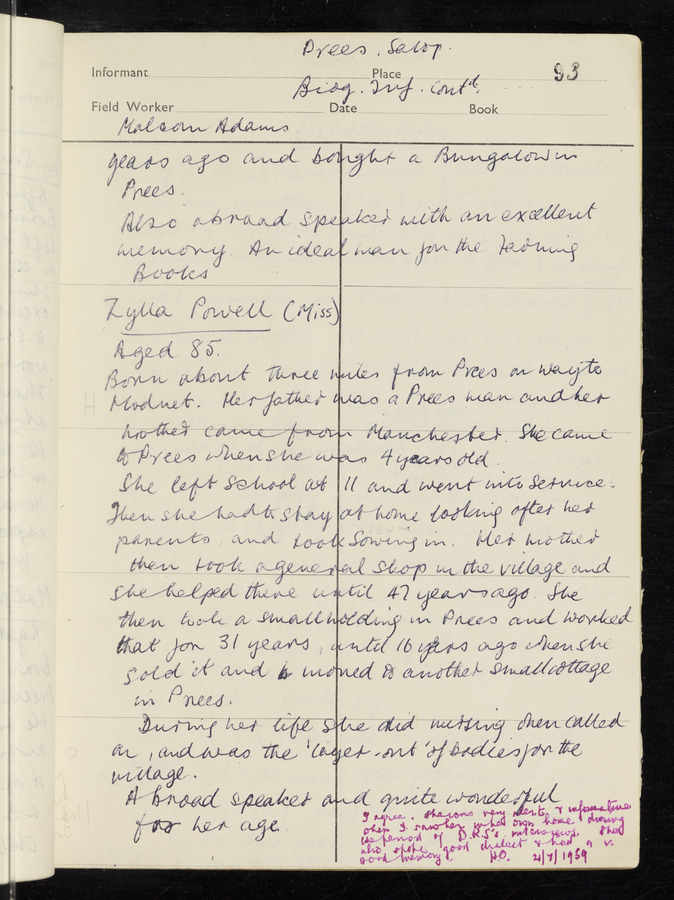 Prees. Salop.
Informant Place 93
Biog. Inf. Contd.
Field Worker Date Book
Malcom Adams
years ago and bought a Bungalow in
Prees.
Also abroad speaker with an excellent
memory. An ideal man for the Farming
Books
Zylla Powell (Miss)
Aged 85.
Born about three miles from Prees on way to
Modnet. Her father was a Prees man and her
mother came from Manchester. She came
to Prees when she was 4 years old.
She left School at 11 and went into Service.
Then she had to stay at home looking after her
parents, and took Sowing in. Her mother
then took a general shop in the village and
she helped there until 47 years ago. She
then took a smallholding in Prees and worked
that for 31 years, until 16 years ago when she
sold it and moved to another small cottage
in Prees.
During her life she did nursing when called
on, and was the 'layer-out' of bodies for the
village.
A broad speaker and quite wonderful
for her age.
I agree. She was very alert & informative
when I saw her in her own home during
the period of D.R.S's interviews. She
also spoke good dialect & had a v.
good memory. HO. 2/7/1959